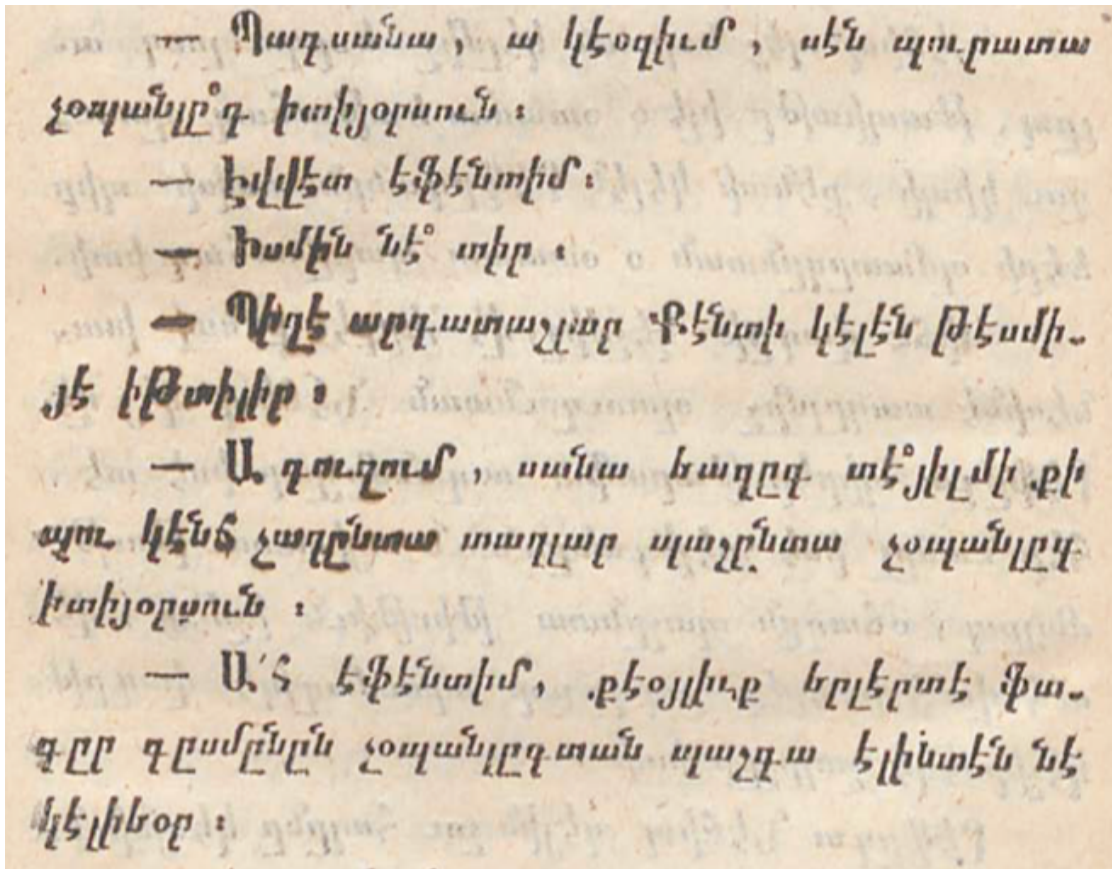 — Պագսանա, ա կէօզիւմ, սէն պուրատա
չօպանլը՞գ իտիյօրսուն։
— Էվվէտ էֆէնտիմ։
— Իսմին նէ՞ տիր։
— Պիզէ արգատաշլար Քէնտի կէլէն թէսմի֊
յէ իթտիլիր։
— Ա. գուզում սանա եազըգ տէ՞յիլմիքի
պու կէնճ չաղընտա տաղլար պաշընտա չօպանլըգ
իտիյօրսուն։
— Ա՛հ էֆէնտիմ, քէօյլիւք երլէրտէ ֆա֊
գըր գըսմընըն չօպանլըգտան պաշգա էլինտէն նէ
կէլիեօր։